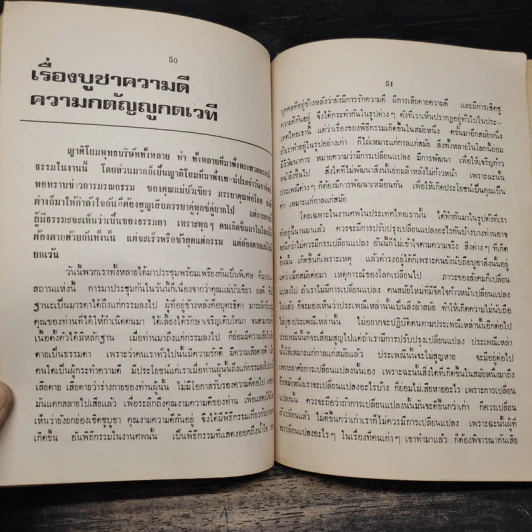 50
เรื่องบูชาความดี
ความกตัญญูกตเวที
ญาติโยมพุทธบริษัททั้งหลาย
ธรรมในงานนี้ โดยส่วนมากก็เป็นญาติโยม
ของคุณแม่บัวเขียว
แต่
ผู้มีธรรมะจะเห็นว่าเป็นของธรรมดา เพราะทุกๆ คนเกิดขึ้นมาในโลกนี้
ต้องตายด้วยกันทั้งนั้น แต่จะเร็วหรือช้าสุดแต่กรรม แต่ต้องตายไม่มี
ยกเว้น
วันนี้พวกเราทั้งหลายได้มาประชุมพร้อมเพรียงกันเป็นพิเศษ
สถานแห่งนี้ การมาประชุมกันในวันนี้ก็เนื่องจากว่าคุณแม่บัวเขียว
ฐานะเป็นมารดาได้ถึงแก่กรรมลงไป ผู้ที่อยู่ข้างหลังคือบุตรธิดา
คุณของท่านที่ได้ให้กำเนิดคนมา ได้เลี้ยงได้รักษาเจริญเติบโตมา
ในเนื้อตั้งตัวได้มีหลักฐาน เมื่อท่านมาถึงแก่กรรมลงไป ก็ย่อมมีความ
ตายเป็นธรรมดา เพราะว่าคนเราทั่วไปนั้นมีความรักดี มีความเสียดายดี
คนใดเป็นผู้กระทำความดี มีประโยชน์แก่เราเมื่อท่านผู้นั้นถึงแก่กรรมลงไป
เสียดาย เสียดายว่าร่างกายของท่านผู้นั้น ไม่มีโอกาสรับรองความดีต่อไป
มันแตกสลายไปเสียแล้ว เพื่อระลึกถึงคุณงามความดีของท่าน
เห็นว่ายังยกย่องเชิดชูบูชา คุณงามความดีกันอยู่ จึงได้มีพิธีกรรมเกี่ยวกับงาน
เกิดขึ้น อันพิธีกรรมในงานศพนั้น เป็นพิธีกรรมที่แสดงออกถึงน้ำใจ
51
บุคคลที่อยู่ข้างหลังว่ายังมีการรักความดี มีการเสียดายความดี และมีการเชิดชู
ความดีกันอยู่ จึงได้กระทำกันในรูปต่างๆ ดังที่เราเห็นปรากฏอยู่ทั่วไปในประ-
เทศไทยเรานั้น แต่ว่าเรื่องของพิธีกรรมเกิดขึ้นในสมัยหนึ่ง ครั้นมาอีกสมัยหนึ่ง
ถ้าเราทำอยู่ในรูปอย่างเก่า ก็ไม่เหมาะแก่กาลสมัย สิ่งทั้งหลายในโลกก็ย่อม
มีวิวัฒนาการ หมายความว่ามีการเปลี่ยนแปลง มีการพัฒนา เพื่อให้เจริญก้าว
หน้ายิ่งขึ้นไป สิ่งใดที่ไม่พัฒนาสิ่งนั้นย่อมล้าหลังไม่ก้าวหน้า เพราะฉะนั้น
ประเพณีต่างๆ ก็ต้องมีการพัฒนาเหมือนกัน เพื่อให้เกิดประโยชน์เป็นคุณเป็น
ค่า เหมาะแก่กาลสมัย
โดยเฉพาะในงานศพในประเทศไทยเรานั้น ได้ทำกันมาในรูปที่ที่เรา
เห็นอยู่นี้นานมาแล้ว ควรจะมีการปรับปรุงเปลี่ยนแปลงอะไรกันบ้างบางท่านอาจ
จะนึกว่าไม่ควรมีการเปลี่ยนแปลง อันนี้ก็ไม่เข้าใจตามความจริง สิ่งต่างๆ ที่เกิด
ขึ้นนั้น เกิดขึ้นก็เพราะเหตุ แล้วดำรงอยู่ได้ก็เพราะคนยังนับถือบูชาสิ่งนั้นอยู่
แต่
เปลี่ยนแปลงไป ถ้าเราไม่มีการเปลี่ยนแปลง
ไปแล้ว ก็จะมองเห็นว่าประเพณีเหล่านั้นเป็นสิ่งล้าสมัย ทำให้เกิดความไม่นับถือ
บูชาประเพณีเหล่านั้น ไม่อยากจะปฏิบัติตนตามประเพณีเหล่านั้นอีกต่อไป
ประเพณีเหล่านั้นก็จะเสื่อมสูญไปแต่ถ้ามีการปรับปรุงเปลี่ยนแปลง ประเพณีเหล่า
นั้นให้เหมาะแก่กาลแก่สมัยแล้ว ประเพณีนั้นจะไม่สูญหาย จะมีอยู่ต่อไป
เพราะอาศัยการเปลี่ยนแปลงนั้นเอง เพราะฉะนั้นสิ่งใดที่เกิดขึ้นในสมัยหนึ่งมาถึง
สมัยหนึ่งเราจะเปลี่ยนแปลงอะไรบ้าง ก็ย่อมไม่เสียหายอะไร เพราะการเปลี่ยน
แปลงนั้น ควรจะถือว่าถ้าการเปลี่ยนแปลงนั้นมันจะดีขึ้นกว่าเก่า ก็ควรเปลี่ยน
ถ้าเปลี่ยนแล้ว ไม่ดีขึ้นกว่าเก่าเราก็ไม่ควรมีการเปลี่ยนแปลง เพราะฉะนั้นผู้ที่
จะเปลี่ยนแปลงอะไรๆ ในเรื่องที่คนเก่าๆ เขาทำมาแล้ว ก็ต้องพิจารณากันเสีย